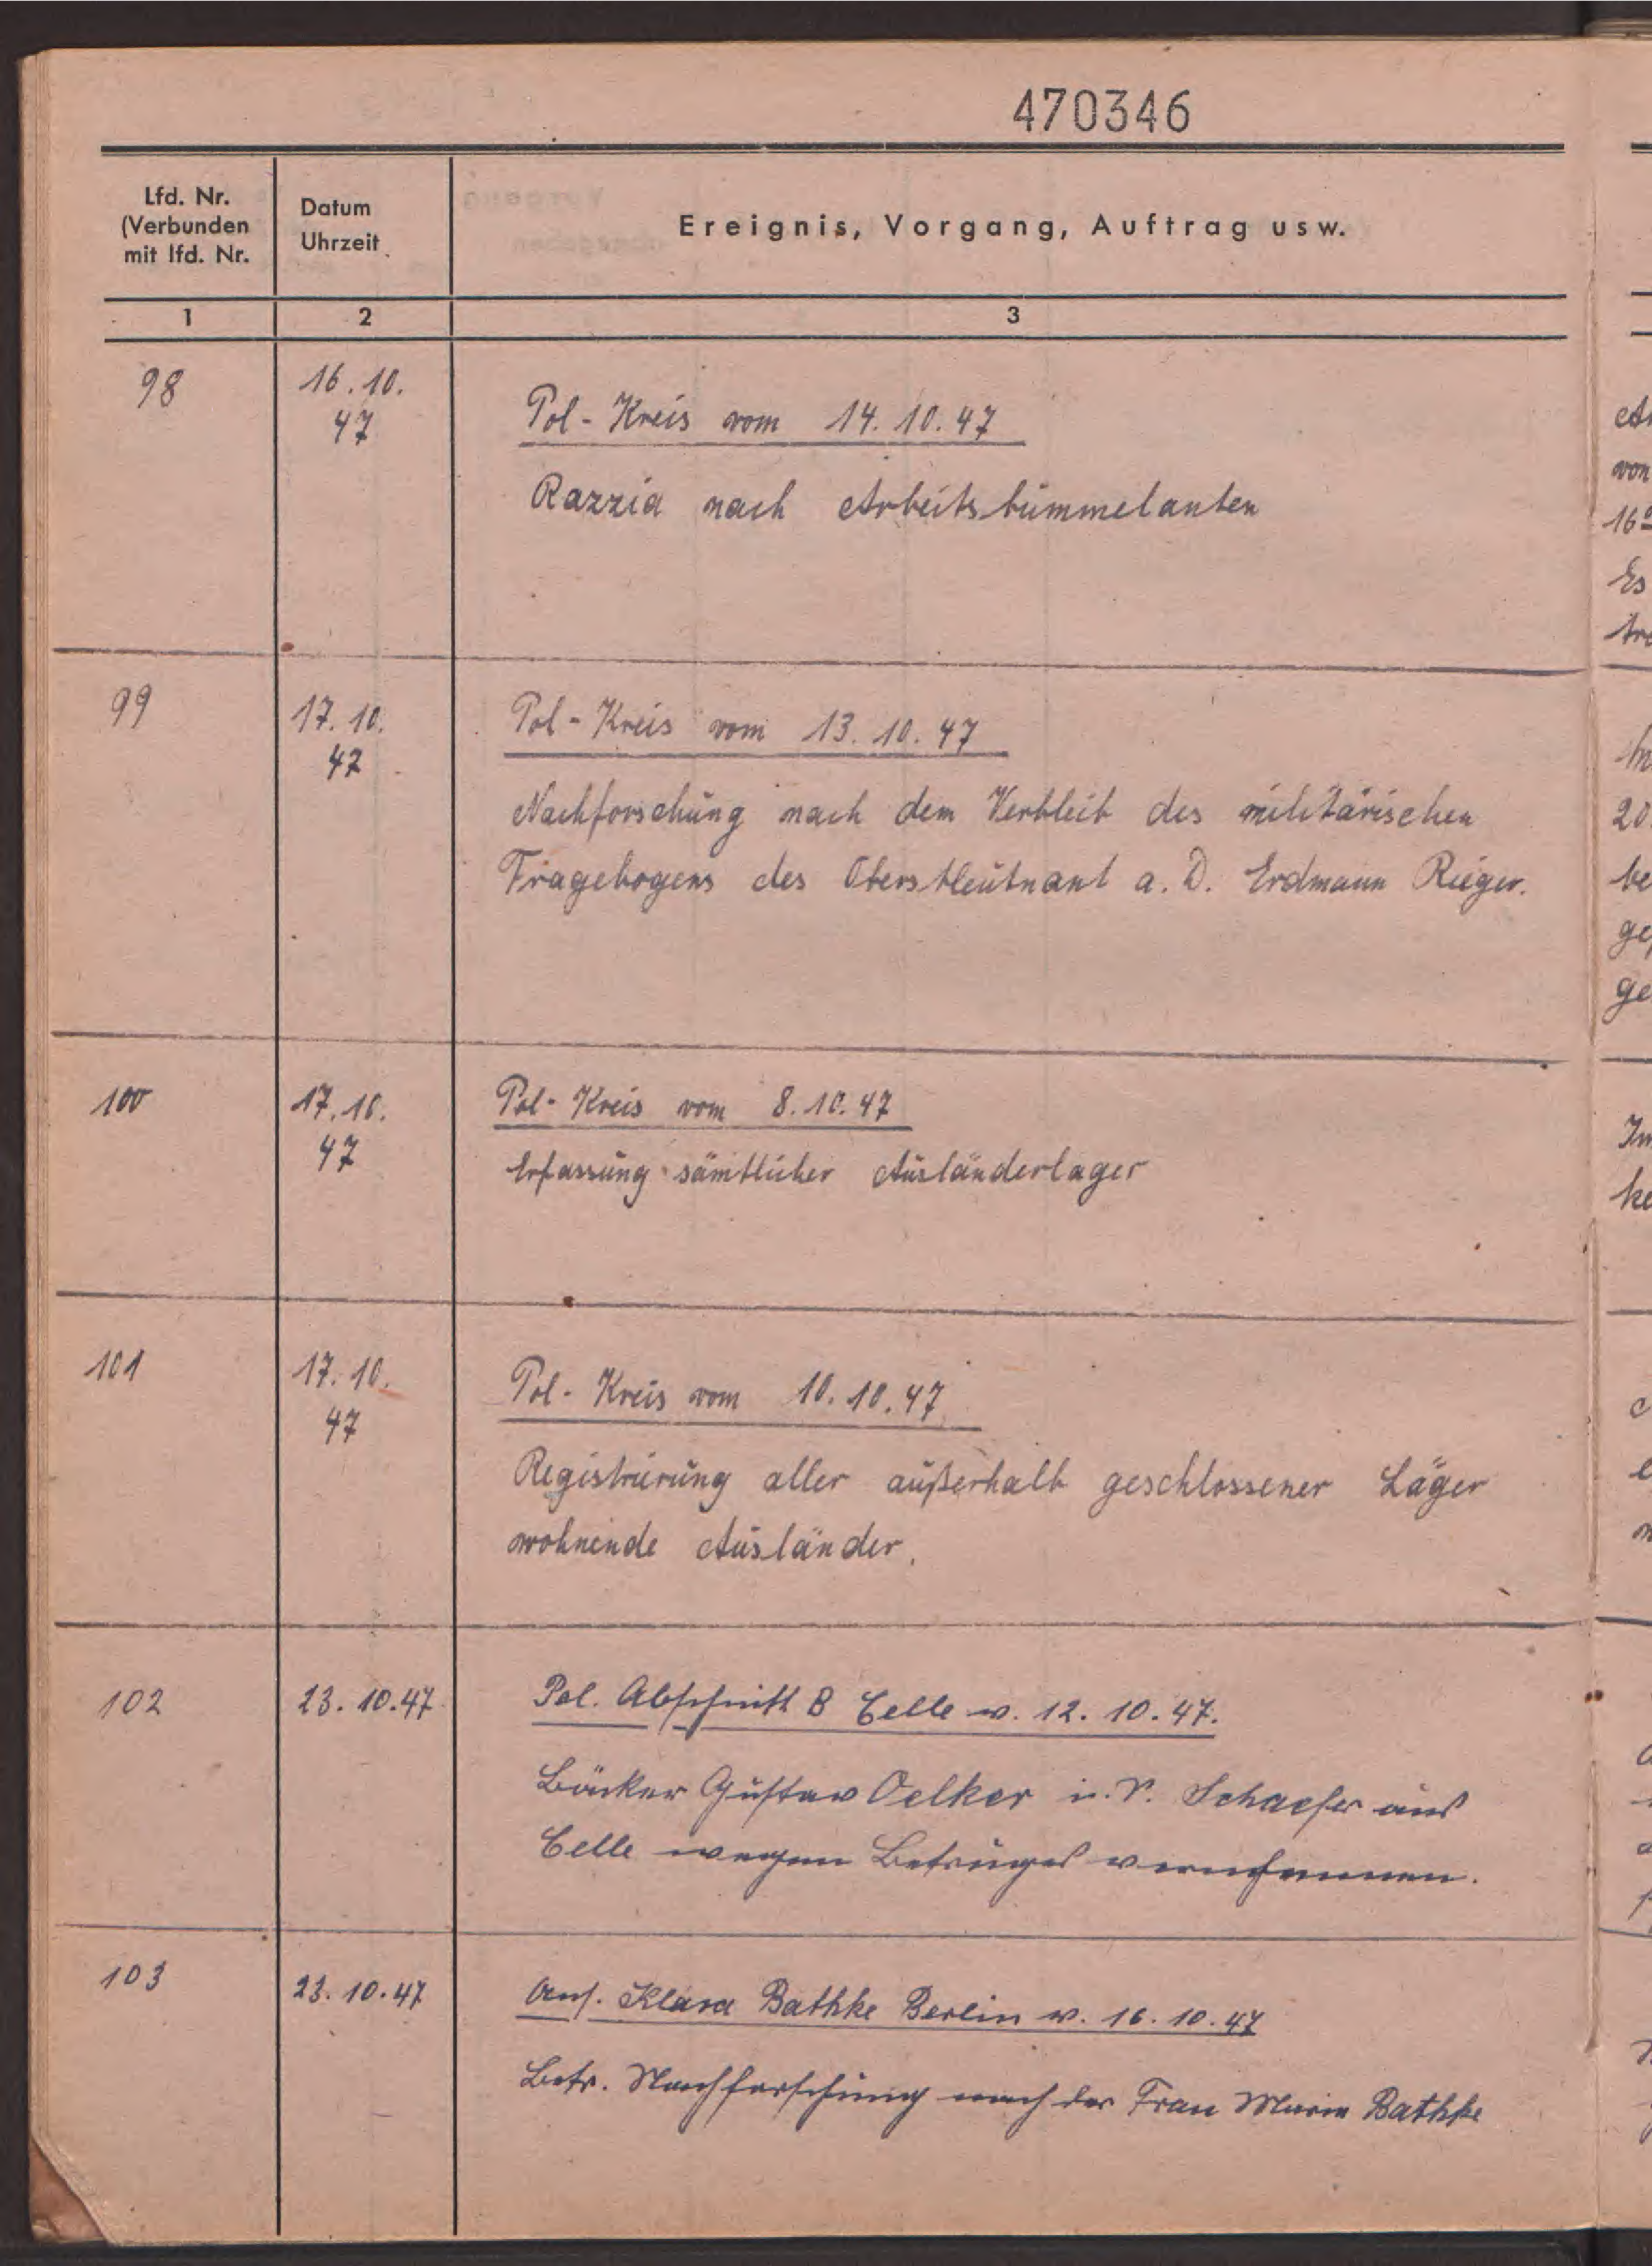 470346
Lfd. Nr.
(Verbunden
mit lfd. Nr.
Datum
Uhrzeit
Ereignis, Vorgang, Auftrag usw.
1 2 3
98
16.10.
47
Pol-Kreis vom 14.10.47
Razzia nach Arbeitsbummelanten
99
17.10.
47
Pol-Kreis vom 13.10.47
Nachforschung nach dem Verbleib des militärischen
Fragebogens des Oberstleutnant a.D. Erdmann Rieger.
100
17.10.
47
Pol-Kreis vom 8.10.47
Erfassung sämtlicher Ausländerlager
101
17.10.
47
Pol-Kreis vom 10.10.47
Registrierung aller außerhalb geschlossener Läger
wohnende Ausländer.
102
23.10.47
Pol. Abschnitt B Celle v. 12.10.47.
Bäcker Gustav Oelker u. Schaefer aus
Celle wegen Betruges vernehmen.
103
23.10.47
Klara Bathke Berlin v. 16.10.47
Betr. Nachforschung nach der Frau Marie Bathke
von
Es
20
be
ge